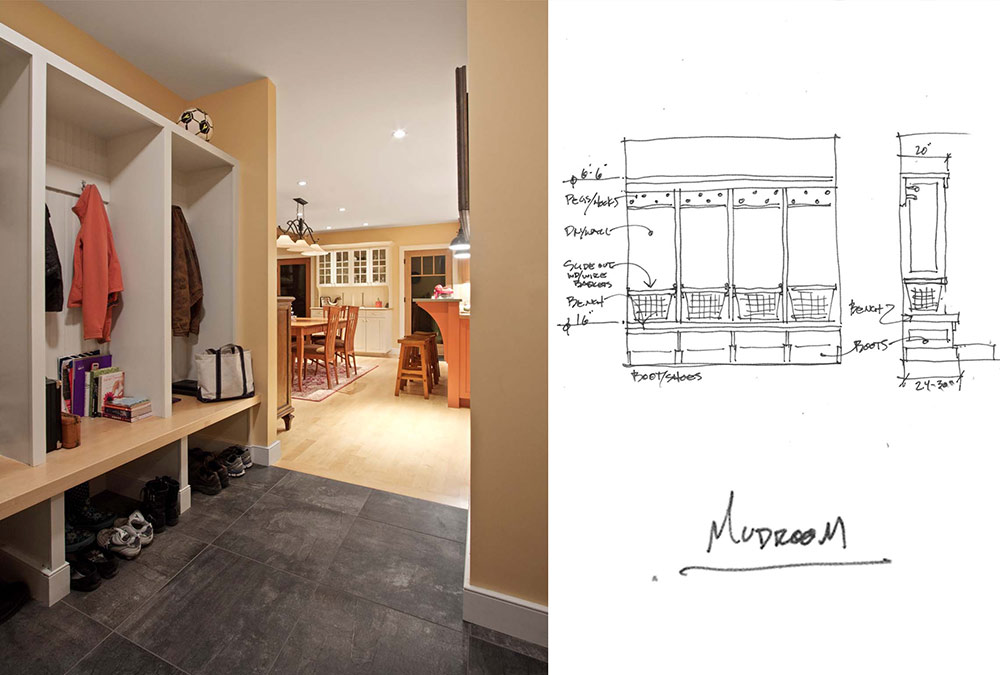 6'-6"
PEGS/HOOKS
DRYWALL
SLIDE OUT
WD/WIRE
BASKETS
BENCH
16"
BOOT/SHOES
20"
BENCH
BOOTS
24-30"
MUDROOM